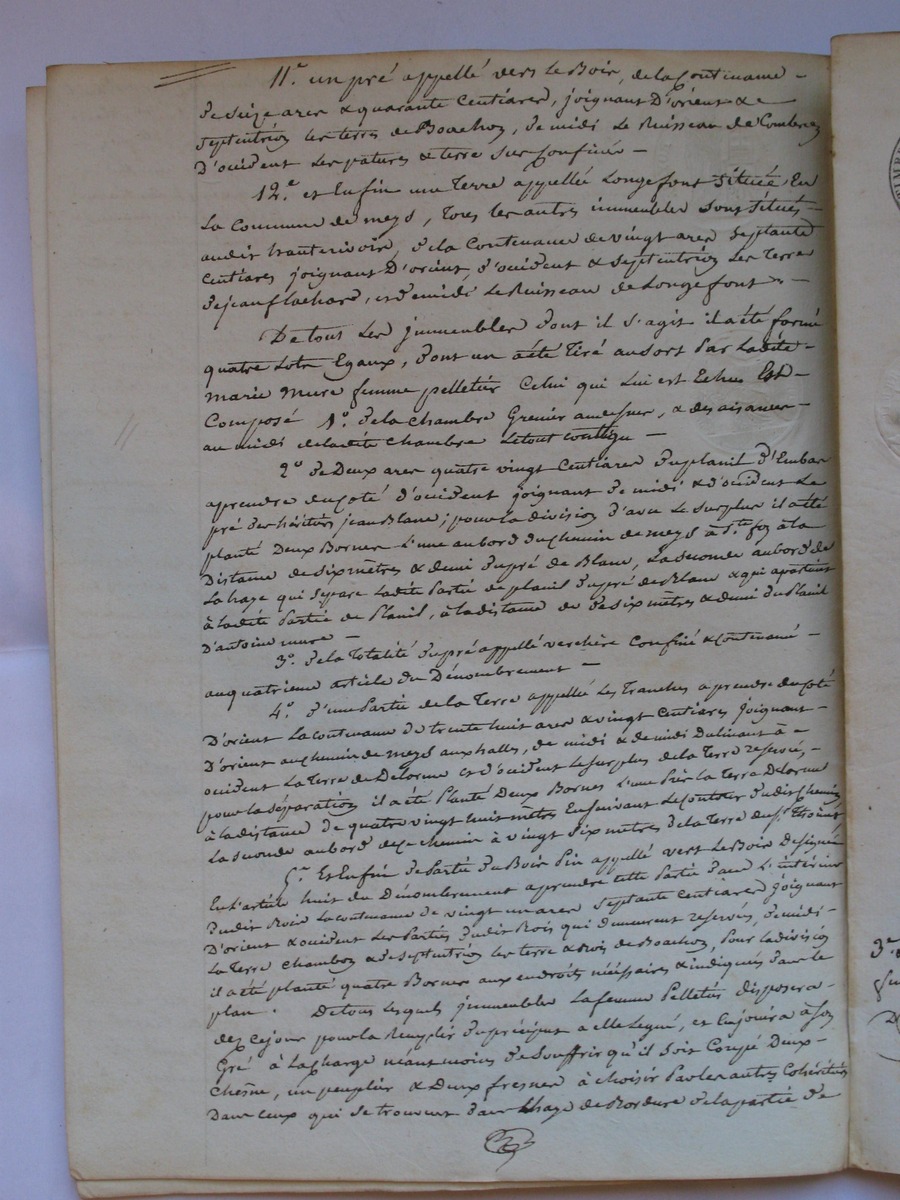 11.º un pré appellé vers le Bois, de la Contenance -
de seize ares & quarante Centiares, joignant D'orient & de
septentrion les terres de Boachon, de midi le Ruisseau de Combe
D'occident les patures & terre sus Confinés -
12.º et Enfin une Terre appellée Longefont située En
La Commune de meys, Tous les autres immeubles sont situés -
audit hauterivoir, de la Contenance de vingt ares septante
Centiares joignant D'orient, d'occident & septentrion les Terres
de jean flachard, et de midi Le Ruisseau de Longefont -
De tous Les jmmeubles Dont il s'agit il a été formé
quatre Lots Egaux, Dont un a été Tiré au sort Par Ladite -
marie mure femme pelletier Celui qui Lui est Echu Est -
Composé 1º. de la chambre Grenier au dessus, & des aisances -
au midi de ladite chambre Le tout contigu -
2º de Deux ares quatre vingt Centiares du planil d'Embas
aprendre du coté d'occident joignant de midi & d'occident Le
pré des héritiers jean Blanc ; pour la division d'avec Le surplus il a été
planté Deux Bornes L'une au bord du chemin de meys à Ste foy à la
Distance de six mètres & demi du pré de Blanc, La seconde au bord de
La haye qui separe Ladite Partie de planil du pré de Blanc & qui apartient
à la dite Partie de Planil, à la distance de de six mètres & demi du Planil
D'antoine mure -
3º. de la Totalité du pré appellé verchère Confiné & Contenancé -
au quatrieme article du Dénombrement -
4.º d'une Partie de la Terre appellée Les Tranches aprendre du coté
D'orient La contenance de trente huit ares & vingt Centiares joignant -
D'orient au chemin de meys aux halles, de midi & de midi Déclinant à -
occident La Terre de Delorme et d'occident Le surplus de la Terre reservés, -
pour la séparation il a été Planté Deux Bornes L'une Près La Terre Delorme
à la distance de quatre vingt huit mètres En suivant Le Contour dudit chemin
La seconde au bord de ce chemin à vingt six mètres de la Terre du sr. Thoinet,
5.º Et Enfin de Partie du Bois Pin appellé vers Le Bois Designé
En L'article huit du Dénombrement aprendre cette Partie dans L'intérieur
dudit Bois La contenance de vingt un ares septante Centiares joignant
D'orient & occident Les Parties dudit Bois qui demeurent reservés, de midi -
La Terre Chambon & de septentrion les terre & Bois de Boachon, Pour la division
il a été planté quatre Bornes aux endroits nécéssaires & indiqués dans le
plan. De tous Lesquels jmmeubles La femme Pelletier disposera -
dez ce jour pour la Remplir du préciput a elle Legué, et En jouira à son
Gré à La charge néant moins de souffrir qu'il soit Coupé Deux -
Chesne, un peuplier & Deux fresnes à choisir Par les autres Cohéritiers
Dans ceux qui se trouvent dans Lhaye de Bordure de la partie de
3.e